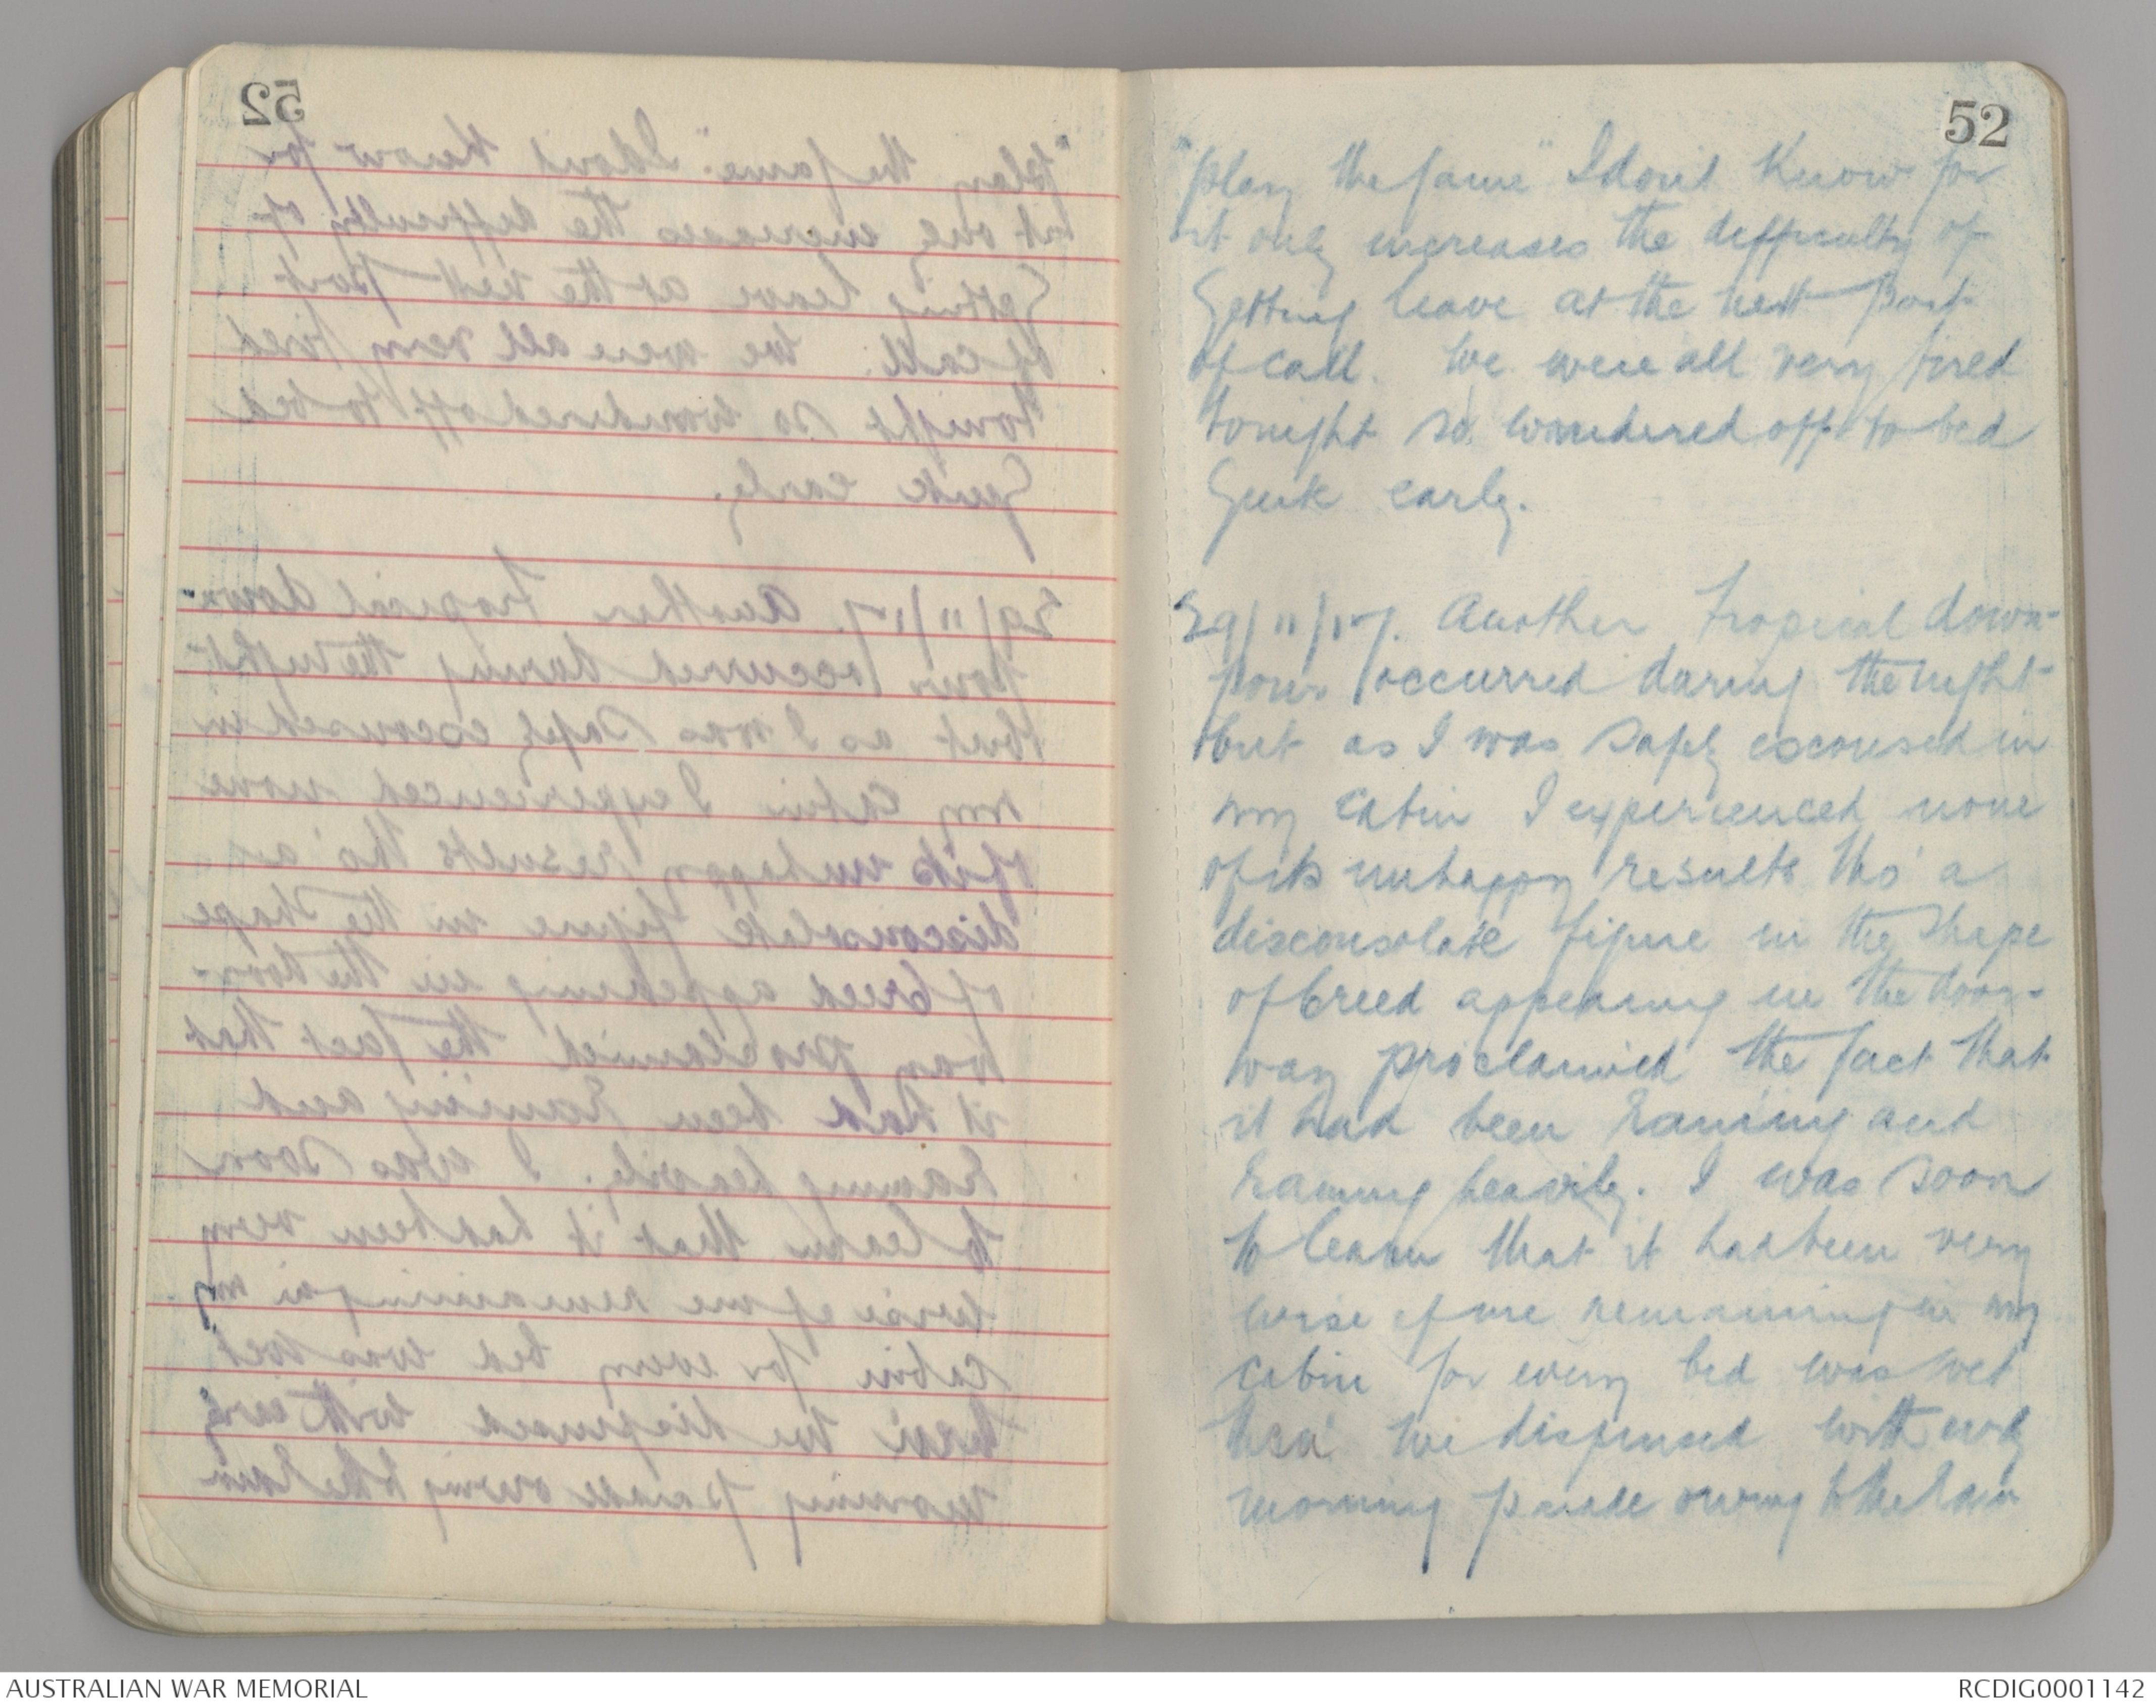 52
"play the game" I dont know for
it only increases the difficulty of
Getting leave at the next Port
of call. We were all very tired
tonight so wandered off to bed
Quite early.
29/11/17. Another tropical down-
pour occurred during the night
but as I was safely esconsed in
my cabin I experienced none
of its unhappy results tho' a
disconsolate figure in the shape
of Creed appearing in the door-
way proclaimed the fact that
it had been raining and
raining heavily. I was soon
to learn that it had been very
wise of me remaining in my
cabin for every bed was wet
thro' We dispensed with early
morning parade owing to the rain
AUSTRALIAN WAR MEMORIAL
RCDIG0001142